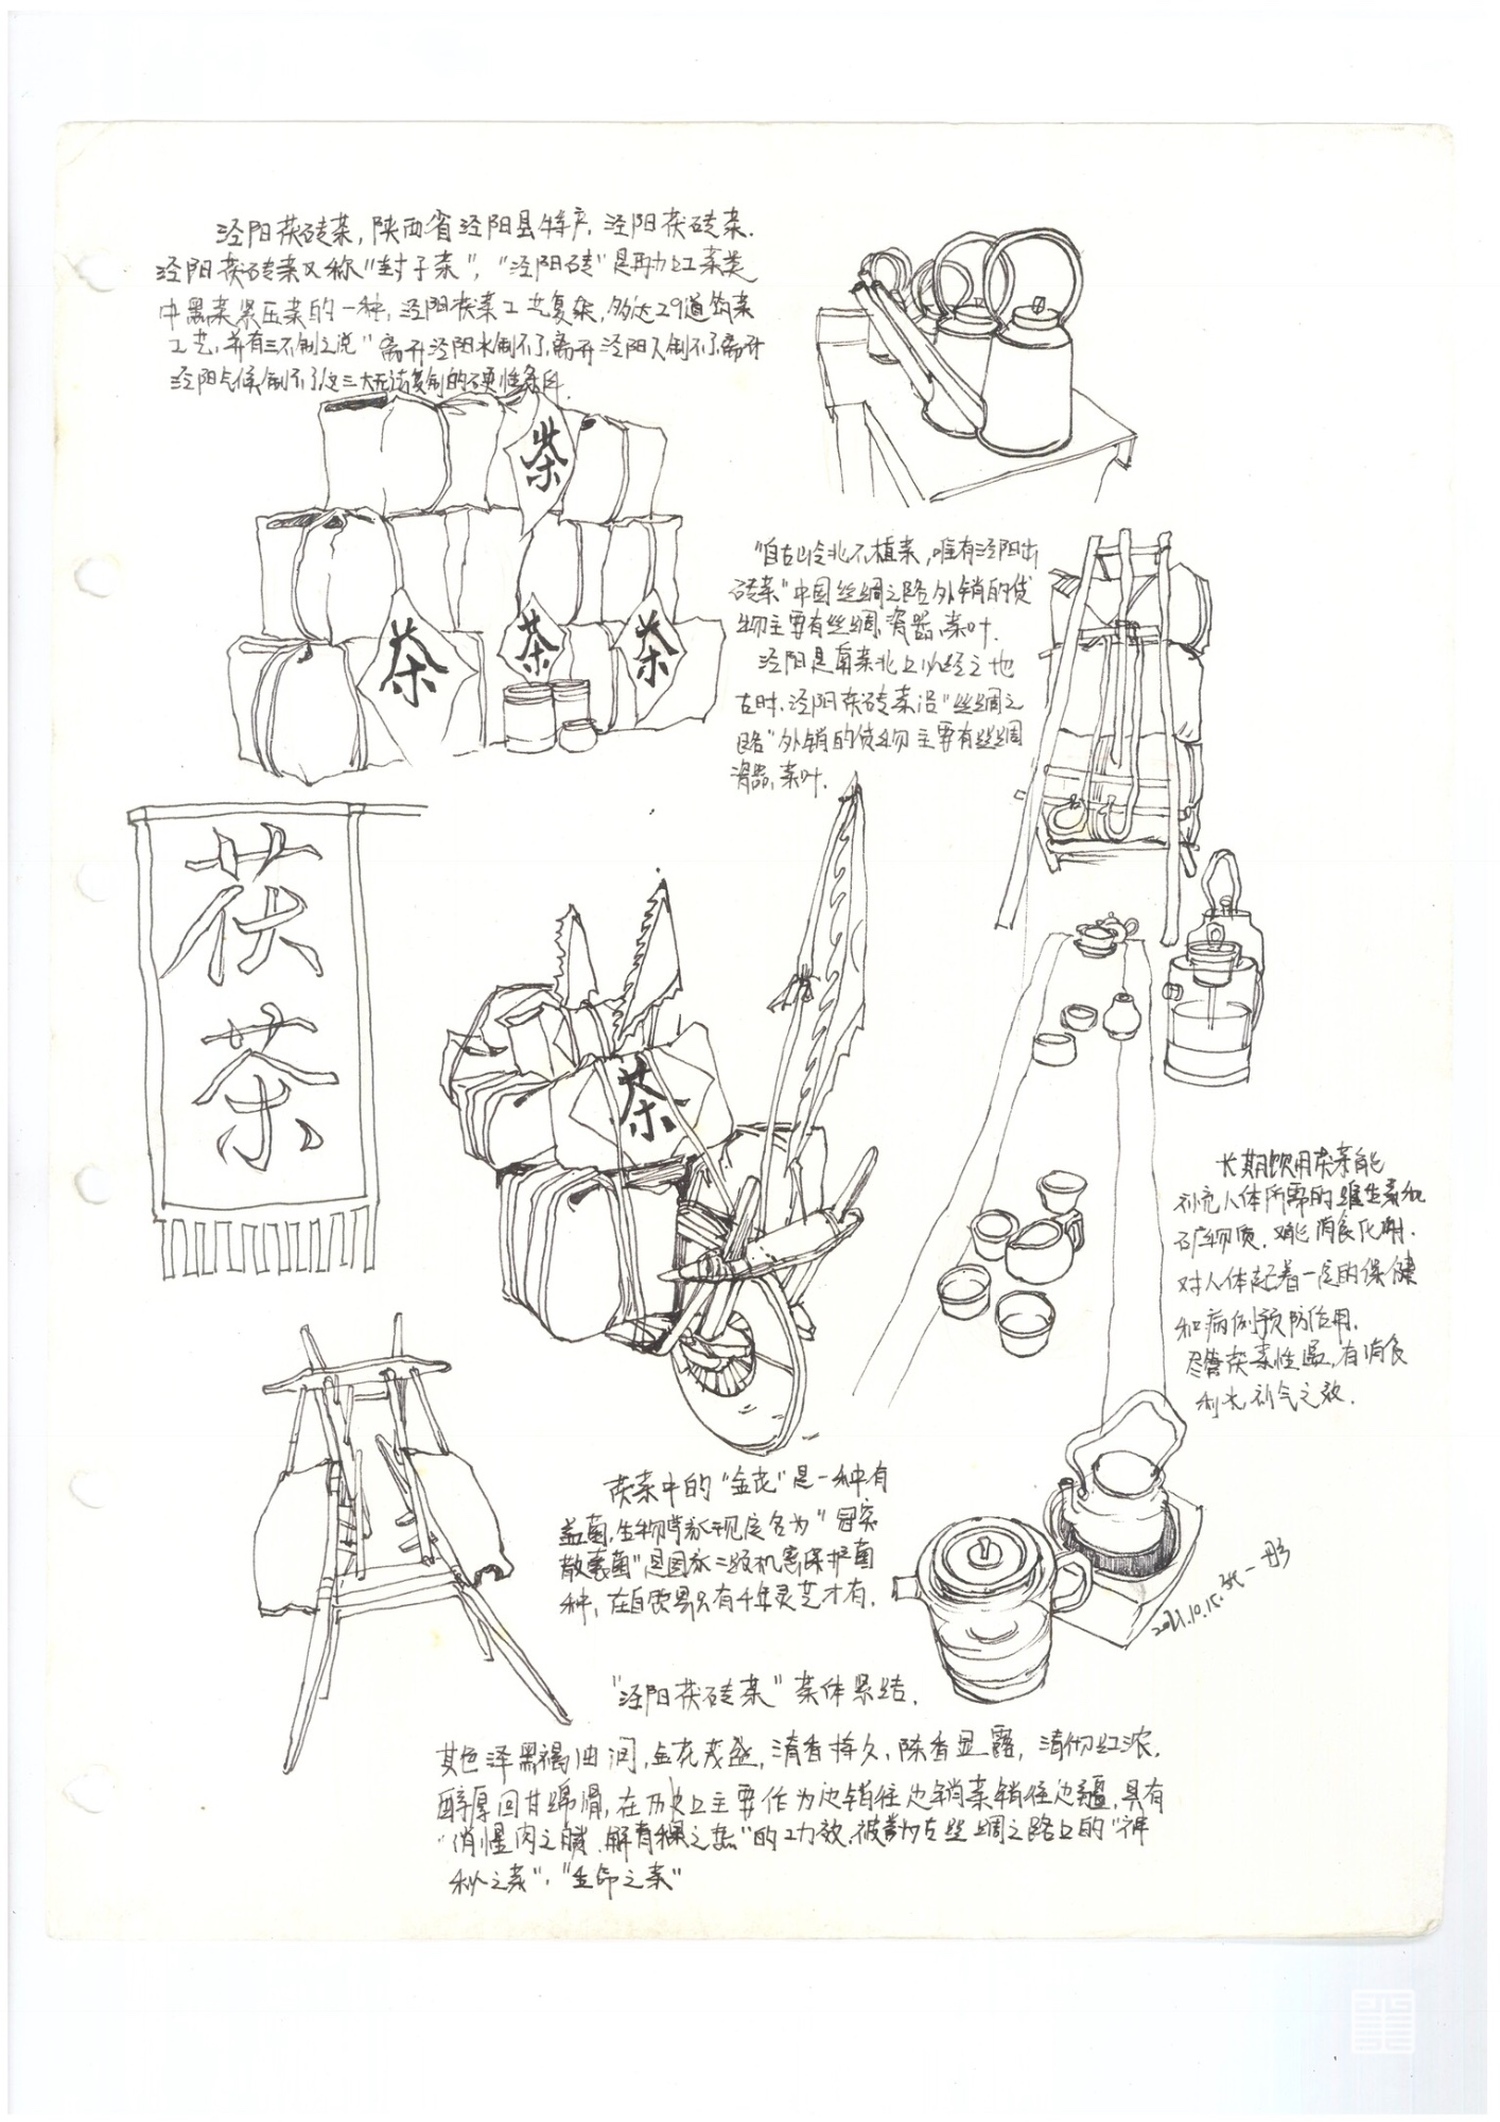 泾阳茯砖茶,陕西省泾阳县特产,泾阳茯砖茶.
泾阳茯砖茶又称"封子茶","泾阳砖"是再加工茶类
中黑茶紧压茶的一种,泾阳茯茶工艺复杂,多达29道筑茶
工艺,并有三不制之说"离开泾阳水制不了,离开泾阳人制不了,离开
泾阳气候制不了这三大无法复制的硬性条件.
茶
茶
茶
茶
"自古岭北不植茶,唯有泾阳出
砖茶"中国丝绸之路外销的货
物主要有丝绸、瓷器、茶叶.
泾阳是南茶北上必经之地
古时,泾阳茯砖茶沿"丝绸之
路"外销的货物主要有丝绸
瓷器、茶叶.
茯
茶
茶
长期饮用茯茶能
补充人体所需的维生素和
矿物质,对能消食化
对人体起着一定的保健
和病例预防作用.
尽管茯茶性温,有消食
补气之效.
茯茶中的"金花"是一种有
益菌,生物学家现定名为"冠突
散囊菌"是国家二级机密保护菌
种,在自然界只有千年灵芝才有.
"泾阳茯砖茶"茶体紧结,
其色泽黑褐油润,金花茂盛,清香持久,陈香显露,清彻红浓,
醇厚回甘绵滑,在历史上主要作为边销往边销茶销往边疆,具有
"消腥肉之腻,解青稞之热"的功效,被誉为古丝绸之路上的"神
秘之茶"、"生命之茶"
2021.10.15.张一彤